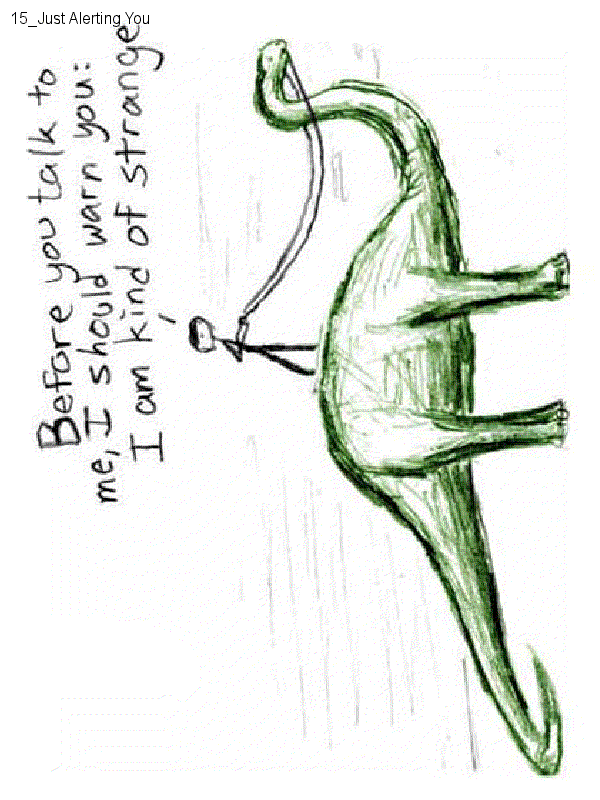 15_Just Alerting You
Before you talk to
me, I should warn you:
I am kind of strange